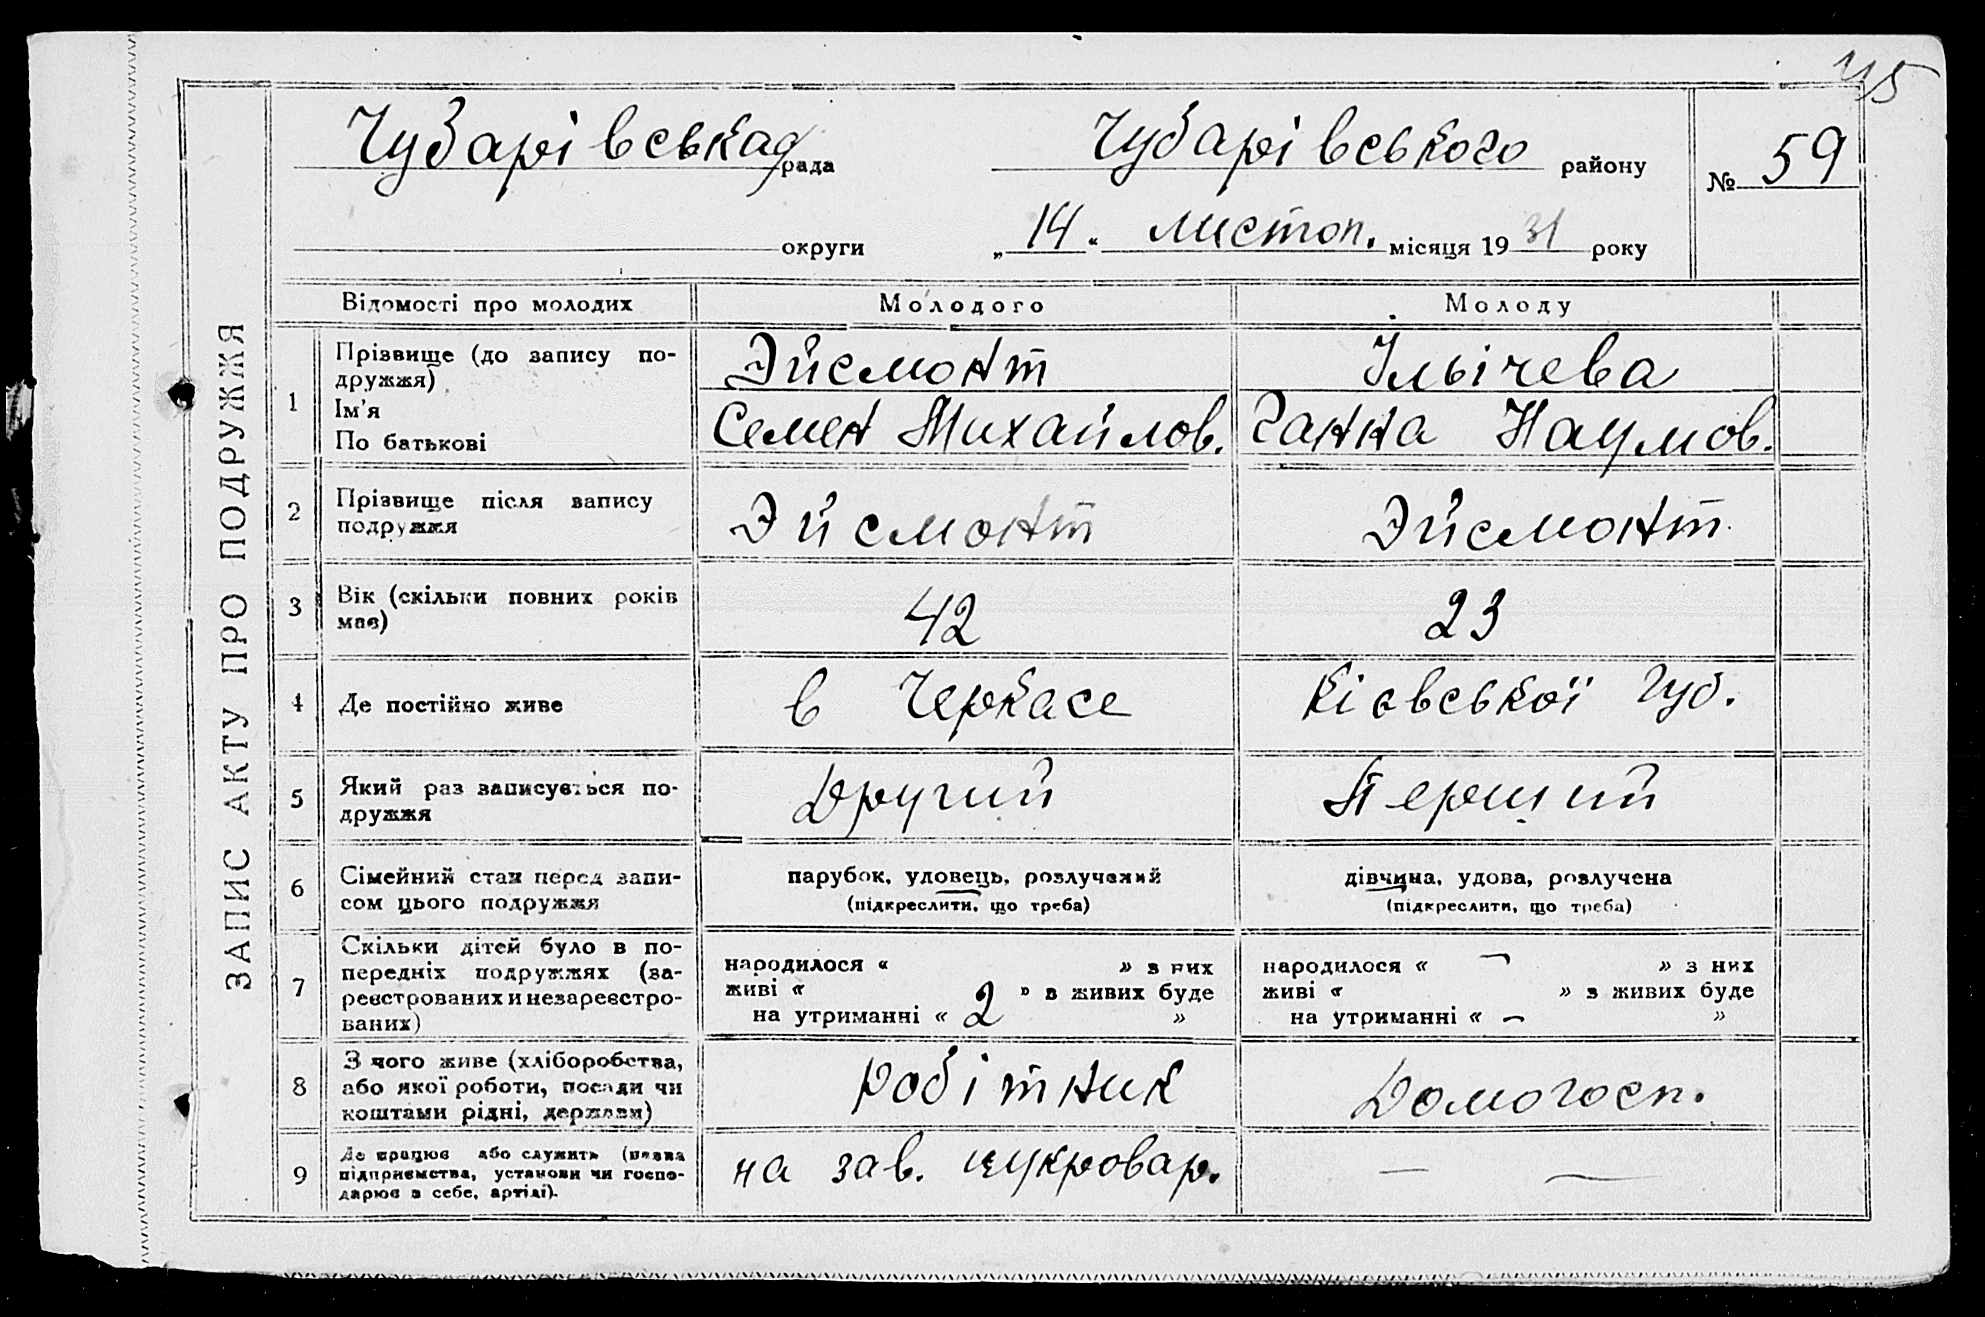 45
Чубарівська рада
Чубарівського району
№ 59
округи
„14“ листоп. місяця 1931 року
ЗАПИС АКТУ ПРО ПОДРУЖЖЯ
Відомості про молодих
Молодого
Молоду
1
Прізвище (до запису по-
дружжя)
Ім’я
По батькові
Эйсмонт
Семен Михайлов.
Ільічева
Ганна Наумов.
2
Прізвище після запису
подружжя
Эйсмонт
Эйсмонт
3
Вік (скільки повних років
має)
42
23
4
Де постійно живе
в Черкасе
Кієвської Губ.
5
Який раз записується по-
дружжя
Другий
Перший
6
Сімейний стан перед запи-
сом цього подружжя
парубок, удовець, розлучений
(підкреслити, що треба)
дівчина, удова, розлучена
(підкреслити, що треба)
7
Скільки дітей було в по-
передніх подружжях (за-
реєстрованих и незареєстро-
ваних)
народилося « » з них
живі « » з живих буде
на утриманні « 2 »
народилося « — » з них
живі « » з живих буде
на утриманні « — »
8
З чого живе (хліборобства,
або якої роботи, посади чи
коштами рідні, держави)
робітник
Домогосп.
9
Де працює або служить (назва
підприємства, установи чи госпо-
дарює в себе, артілі).
на зав. цукровар.
— —